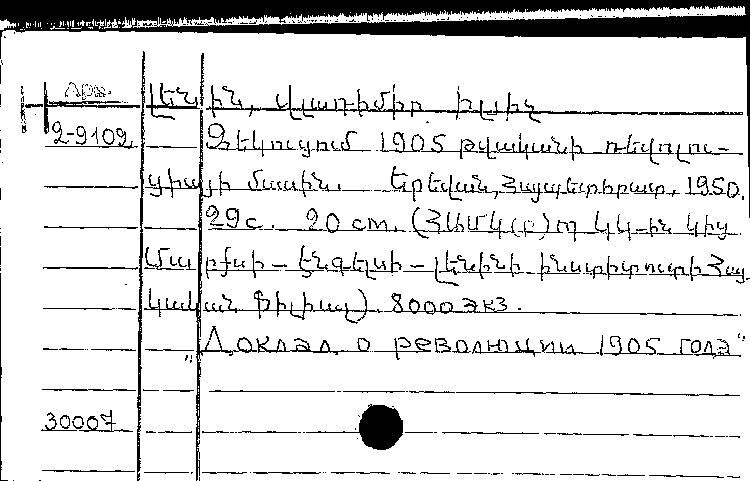 Арм.
Լենին, Վլադիմիր Իլիչ
2-9102 Զեկուցում 1905 թվականի ռևոլու-
ցիայի մասին. Երևան, Հայպետհրատ, 1950.
29с. 20 cm. (ՀԱՄԿ(բ)Պ ԿԿ-ին կից
Մարքսի-Էնգելսի-Լենինի ինստիտուտի Հայ
կական Ֆիլիալ). 8000 экз.
„Доклад о революции 1905 года"
30007